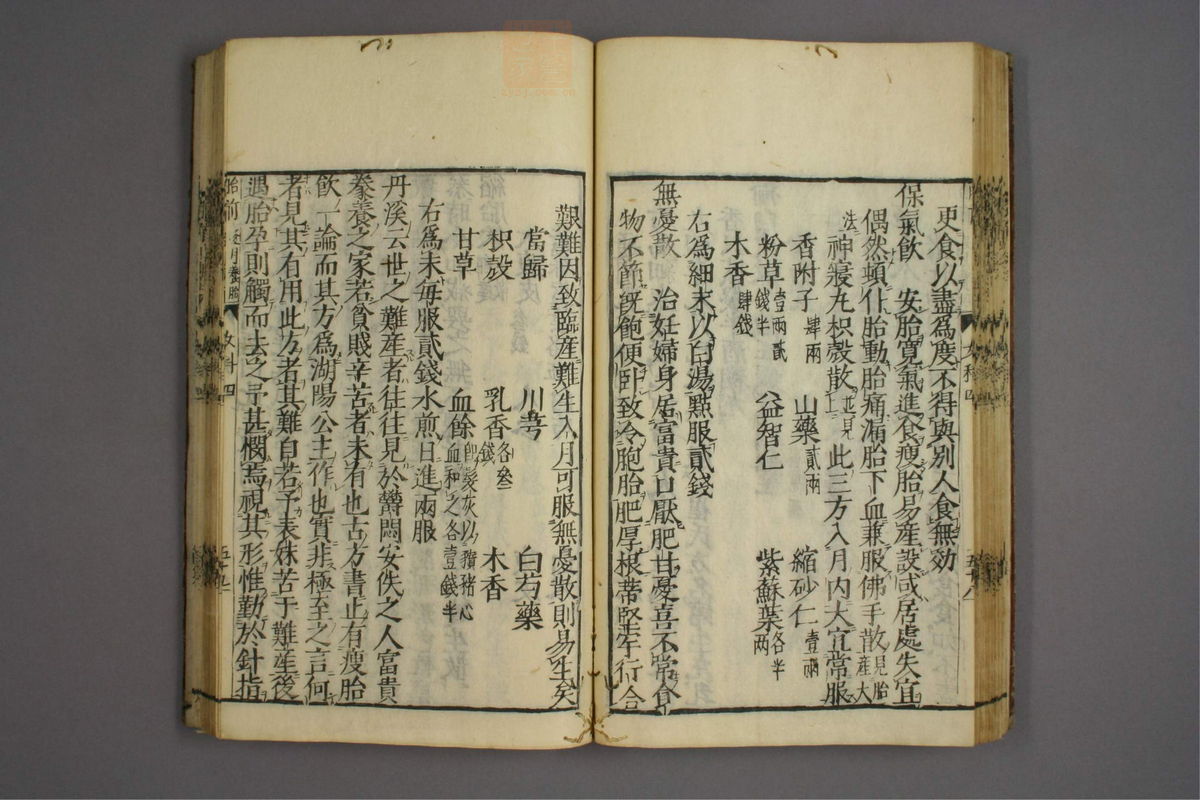 更食以盡為度不得與別人食無効
保氣飲 安胎寬氣進食瘦胎易産設或居處失宜
偶然頓仆胎動胎痛漏胎下血兼服佛手散見胎産大
法神寢丸枳殼散並見此三方入月内大宜常服
香附子肆兩 山藥貳兩 縮砂仁壹兩
粉草壹兩貳錢半 益智仁 紫蘇葉各半兩
木香肆錢
右為細末以白湯㸃服貳錢
無憂散 治妊婦身居富貴口厭肥甘憂喜不常食
物不節既飽便卧致令胞胎肥厚根蒂堅牢行合
艱難因致臨産難生入月可服無憂散則易生矣
當歸 川芎 白芍藥
枳殼 乳香各叁錢 木香
甘草 血餘即髮灰以豬心血和之各壹錢半
右為末每服貳錢水煎日進兩服
丹溪云世之難産者往往見於欝悶安佚之人富貴
豢養之家若貧賤辛苦者未有也古方書止有瘦胎
飲一論而其方為湖陽公主作也實非極至之言何
者見其有用此方者其難自若予表妹苦于難産後
遇胎孕則觸而去之予甚憫焉視其形惟勤於針指
胎前 逐月養胎 女科四